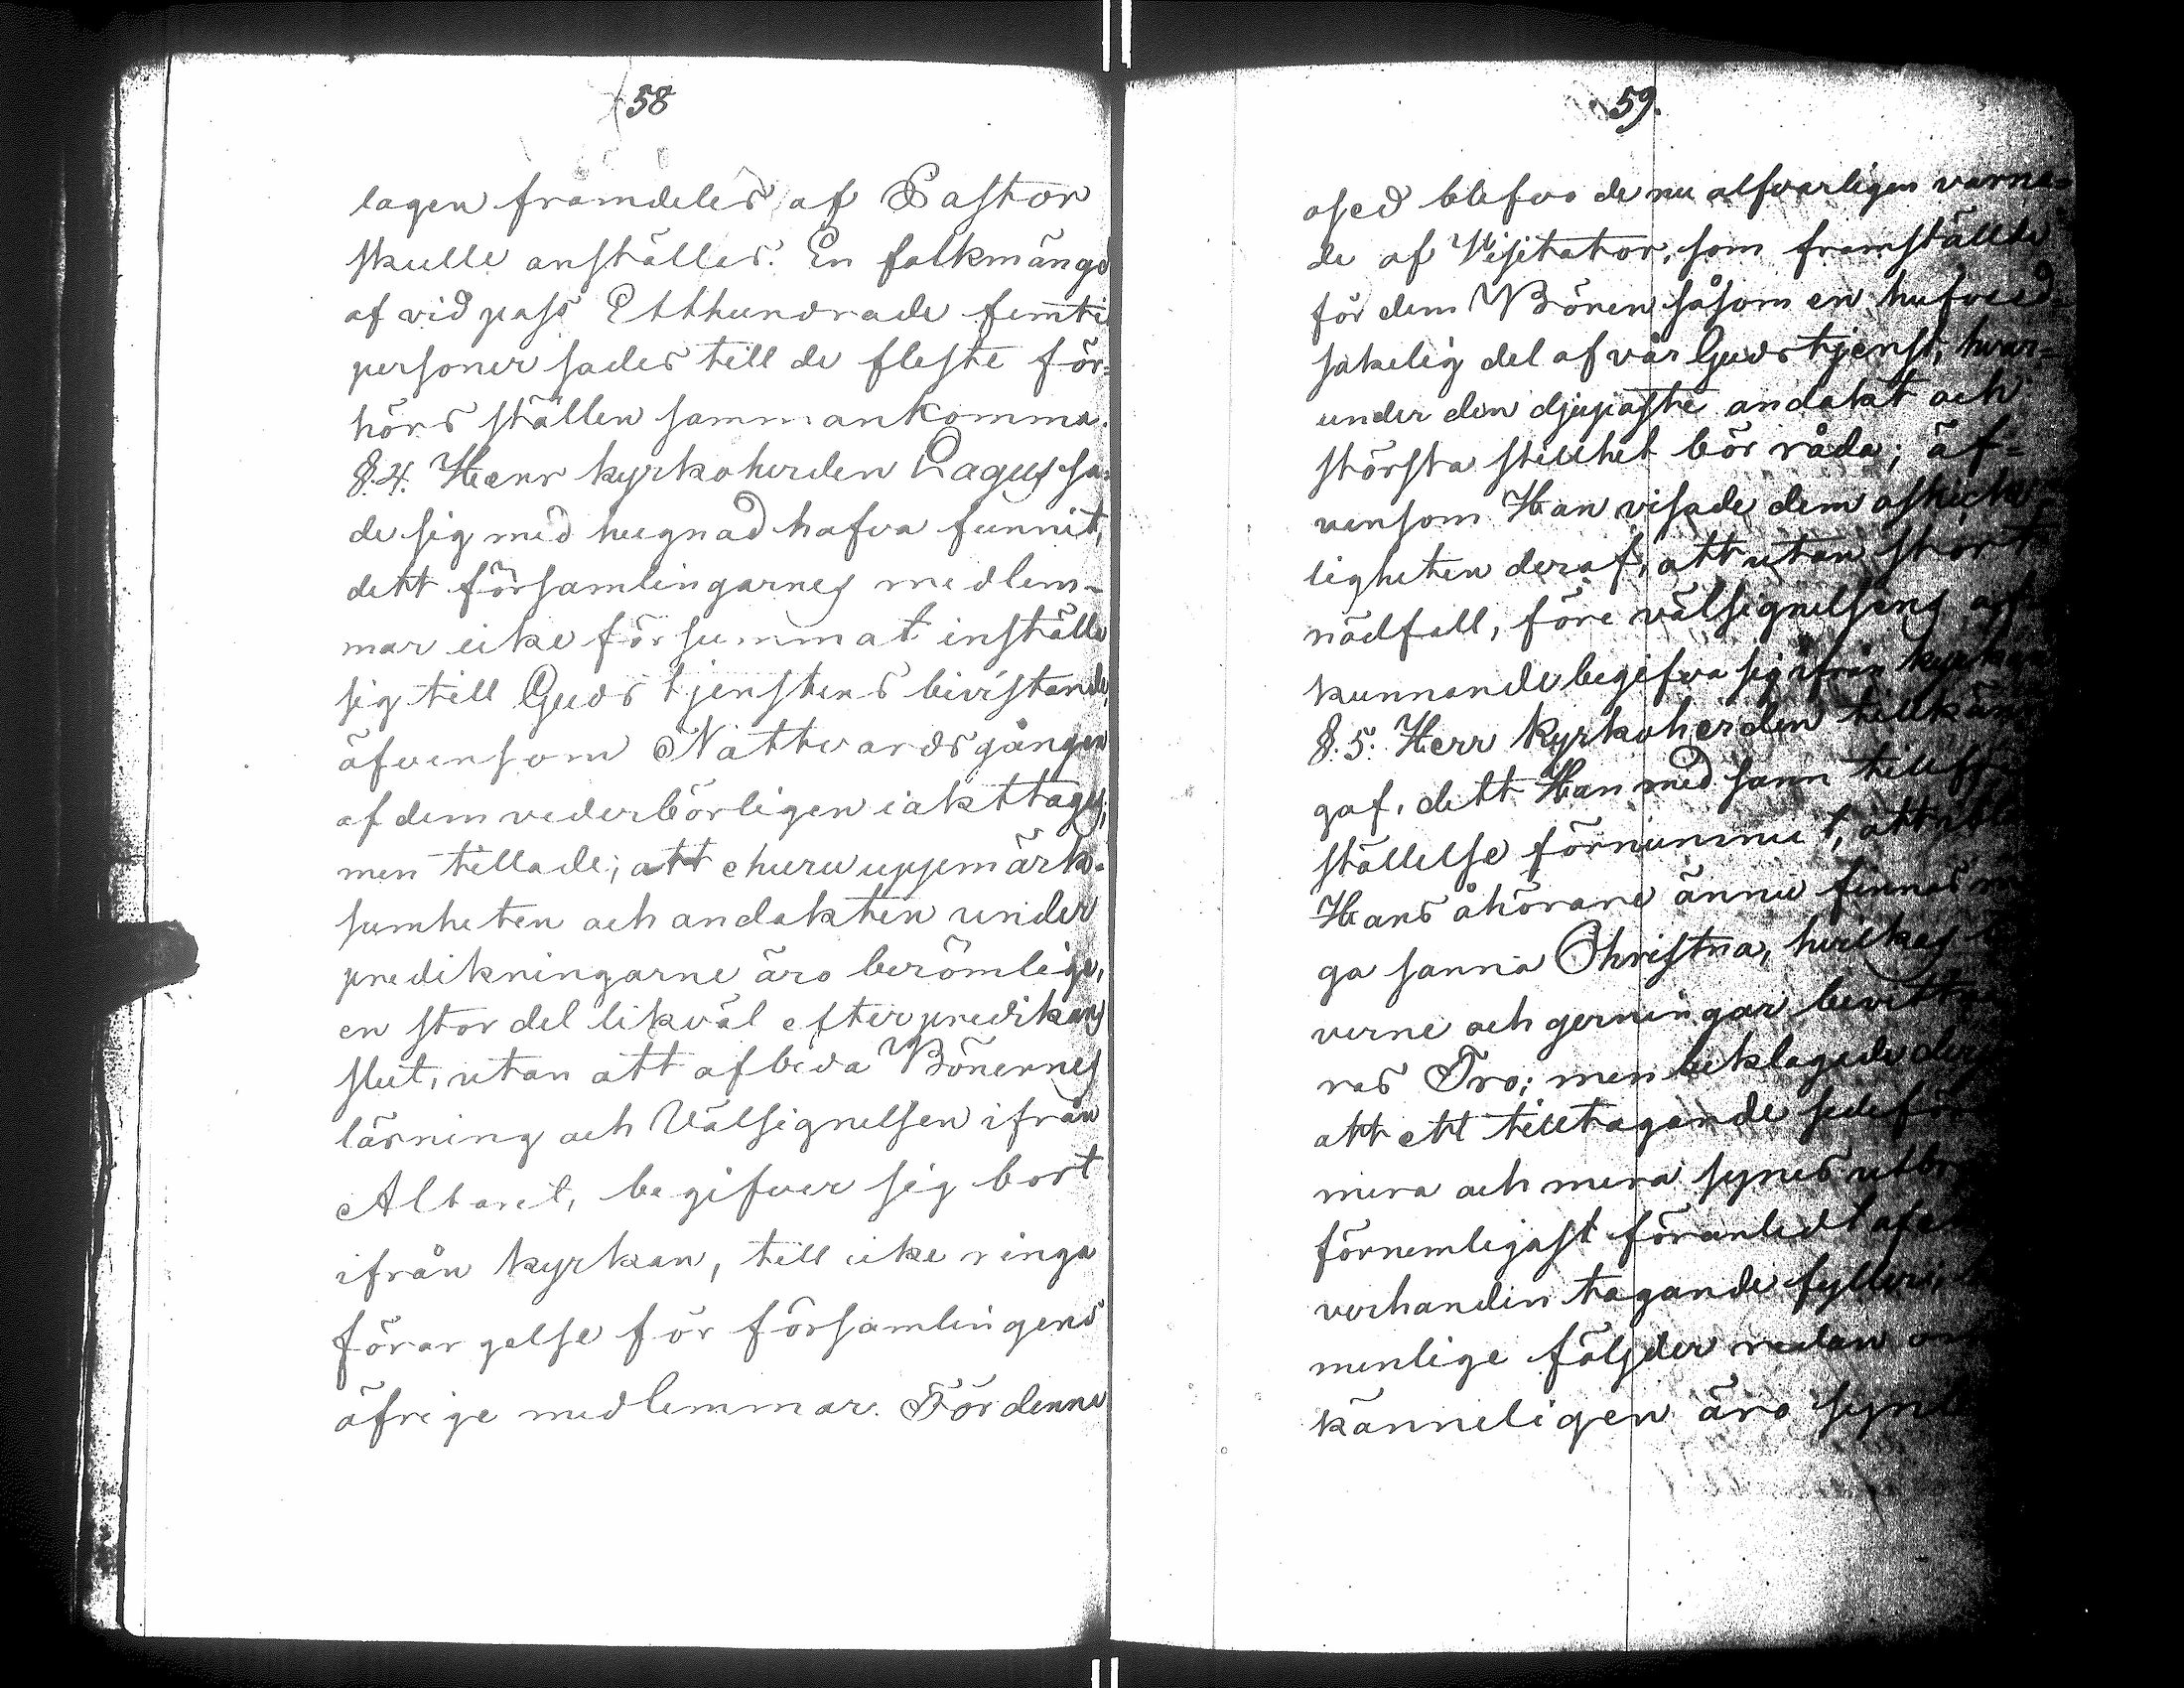 58
lagen framdeles af Pastor
skulle anställas. En folkmängd
af vid pass Etthundrade femti
personer sades till de fleste för=
hörs ställen sammankomma.
§. 4. Herr kyrkoherden Lagus sa=
de sig med hugnad hafva funnit,
dett församlingarnes medlem-
mar icke försummat inställa
sig till Gudstjenstens bivistande,
äfvensom Nattvardsgången
af dem vederbörligen iakttages;
men tillade; att ehuru uppmärk-
samheten och andakten under
predikningarne äro berömliga,
en stor del likväl efter predikans
slut, utan att afbida Bönernes
läsning och Välsignelsen ifrån
Altaret, begifver sig bort
ifrån kyrkan, till icke ringa
förargelse för församlingens
öfrige medlemmar. För denna
59.
osed blefvo de nu alfvarligen varna=
de af Visitator, som framställde
för dem Bönen såsom en hufvud=
sakelig del af vår Gudstjenst, hvar=
under den djupaste andakt och
största stillhet bör råda; äf=
vensom Han visade dem oskick=
ligheten deraf, att utan stort
nödfall, före välsignelsens af=
kunnande begifva sig ifrån kyrkan
§. 5. Herr Kyrkoherden tillkänna
gaf, dett Han med sann tillfreds
ställelse förnummit, att ibland
Hans åhörare ännu finnas
ga sanna Christna, hvilkas
verne och gerningar bevittna
ras Tro; men beklagade
att ett tilltagande
mera och mera synes
förnemligast föranledt af
verhanden tagande fylleri,
menlige följder redan
känneligen äro